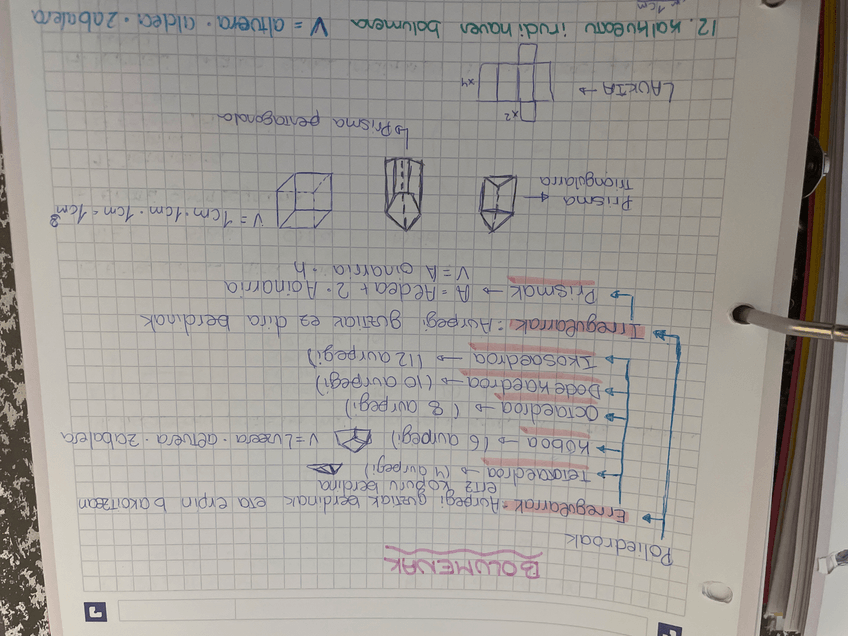 BOLUMENAK
Poliedroak
Erregularrak: Aurpegi guztiak berdinak eta erpin bakoitzean
ertz kopuru berdina
Tetraedroa → (4 aurpegi)
Kuboa → (6 aurpegi) V = Luzera · altuera · zabalera
Octaedroa → (8 aurpegi)
Dodekaedroa → (10 aurpegi)
Ikosaedroa → (12 aurpegi)
Irregularrak: Aurpegi guztiak ez dira berdinak
Prismak → A = Aaldea + 2 · Aoinarria
V = A oinarria · h
Prisma
Triangularra
V = 1cm · 1cm · 1cm = 1cm³
↳ Prisma pentagonala
LAUKIA → x2
x4
12. Kalkulatu irudi hauen bolumena V = altuera · aldea · zabalera
1cm